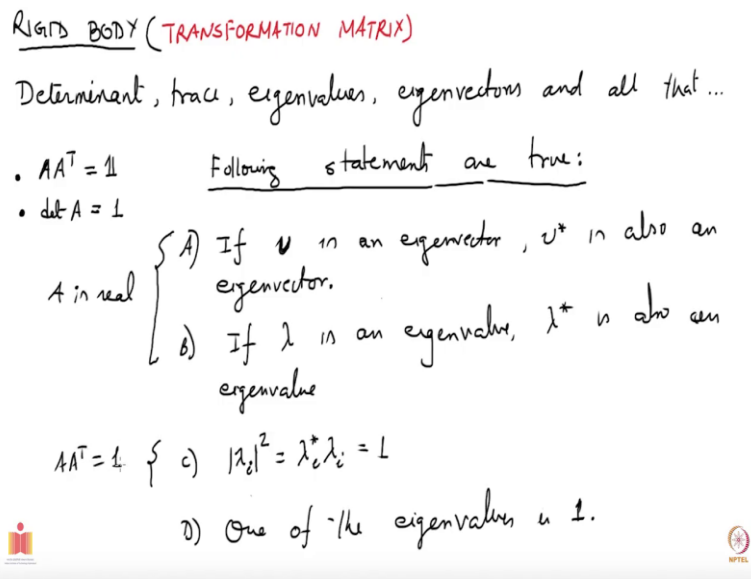 RIGID BODY (TRANSFORMATION MATRIX)
Determinant, trace, eigenvalues, eigenvectors and all that...
• AAᵀ = 𝟙
Following statements are true:
• det A = 1
A) If v is an eigenvector, v* is also an
eigenvector.
A is real
B) If λ is an eigenvalue, λ* is also an
eigenvalue
AAᵀ = 1 { C) |λᵢ|² = λᵢ* λᵢ = 1
D) One of the eigenvalues is 1.
NPTEL